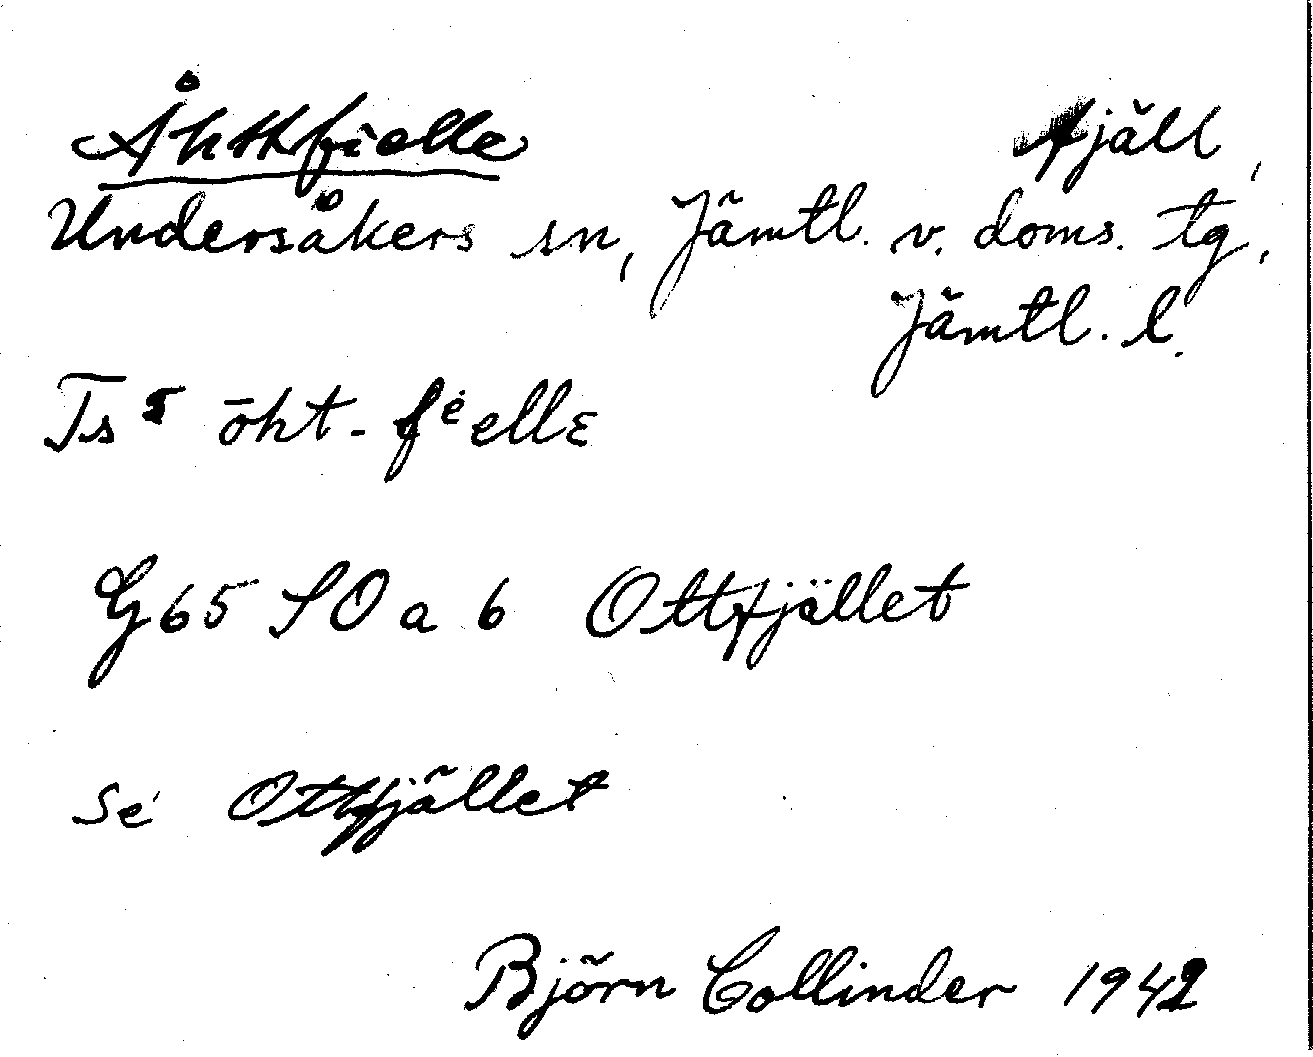 Åhttfielle fjäll,
Undersåkers sn, Jämtl. v. doms. tg,
Jämtl. l.
Ts 5 ōht-fėellε
G65 SO a 6 Ottfjället
se Ottfjället
Björn Collinder 1942